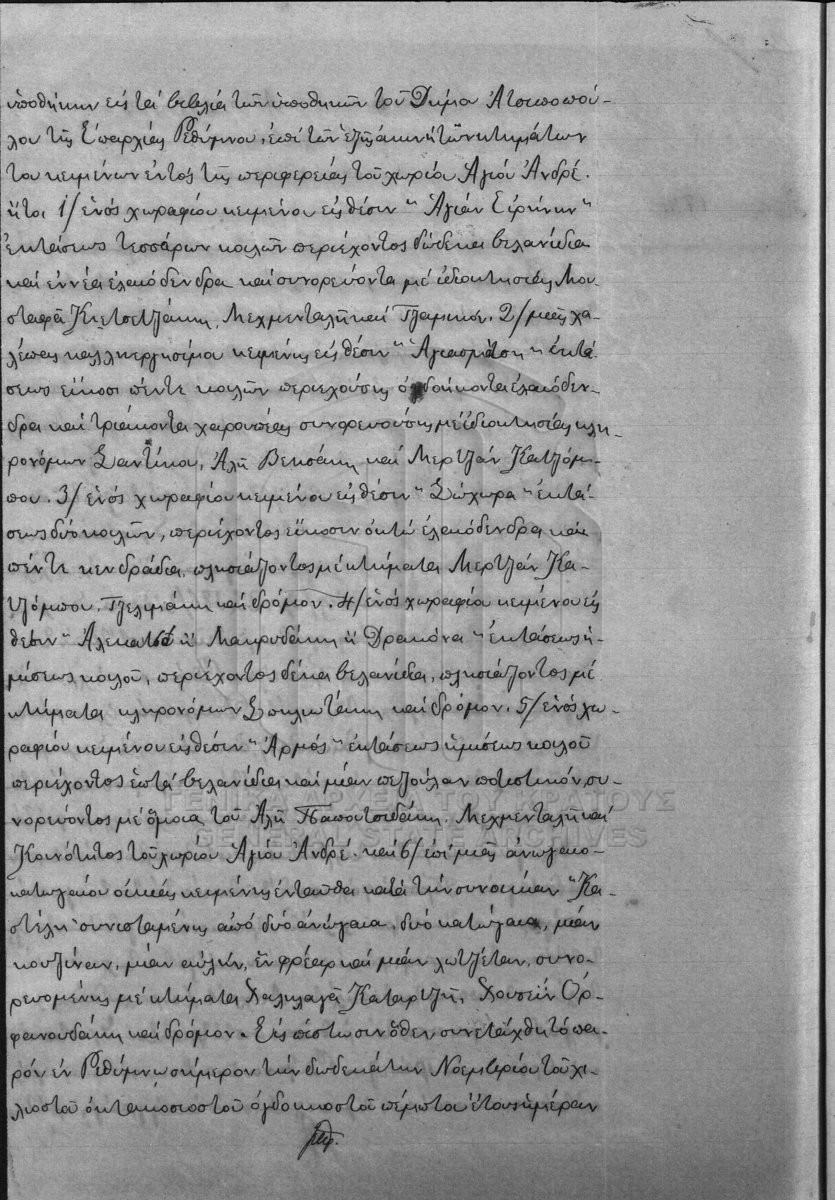 ὑποθήκην εἰς τά βιβλία τῶν ὑποθηκῶν τοῦ Δήμου Ἀτσιποπού-
λου τῆς Ἐπαρχίας Ρεθύμνου, ἐπί τῶν ἑξῆς ἀκινήτων κτημάτων
του κειμένων ἐντός τῆς περιφερείας τοῦ χωρίου Ἁγίου Ἀνδρέ.
ἤτοι 1/ ἑνός χωραφίου κειμένου εἰς θέσιν " Ἁγιάν Εἰρήνην "
ἐκτάσεως τεσσάρων κοιλῶν περιέχοντος δώδεκα βελανίδια
καί ἐννέα ἐλαιόδενδρα καί συνορεύοντα μέ ἰδιοκτησίας Μου-
σταφᾶ Κιετσετζάκη, Μεχμενταλῆ καί Τζαμικοῦ. 2/ μιᾶς χα-
λέπας καλλιεργησίμου κειμένης εἰς θέσιν " Ἁγιασμάτση " ἐκτά-
σεως εἴκοσι πέντε κοιλῶν περιεχούσης ὀγδοήκοντα ἐλαιόδεν-
δρα καί τριάκοντα χαρουπέας συνορευούσης μέ ἰδιοκτησίας κλη-
ρονόμων Σαντίκου, Ἀλῆ Βεκσάκη καί Μερτζάν Κατζόμ-
που. 3/ ἑνός χωραφίου κειμένου εἰς θέσιν " Σώχωρα " ἐκτά-
σεως δύο κοιλῶν, περιέχοντος εἴκοσιν ὀκτώ ἐλαιόδενδρα καί
πέντε κενδράδια, πλησιάζοντος μέ κτήματα Μερτζάν Κα-
τζόμπου, Τζελιμάκη καί δρόμον. 4/ ἑνός χωραφίου κειμένου εἰς
θέσιν " Μακρυδάκη ἤ Δρακόνα " ἐκτάσεως ἡ-
μίσεως κοιλοῦ, περιέχοντος δέκα βελανίδια, πλησιάζοντος μέ
κτήματα κληρονόμων καί δρόμον. 5/ ἑνός χω-
ραφίου κειμένου εἰς θέσιν " Ἀρμός " ἐκτάσεως ἡμίσεως κοιλοῦ
περιέχοντος ἑπτά βελανίδια καί μίαν πεζούλαν ποτιστικόν, συ-
νορεύοντος μέ ὅμοια τοῦ Ἀλῆ Παπουτσιδάκη, Μεχμενταλῆ καί
Κοινότητος τοῦ χωρίου Ἁγίου Ἀνδρέ. καί 6/ ἐπί μιᾶς ἀνωγαιο-
κατωγαίου οἰκίας κειμένης ἐνταῦθα κατά τήν συνοικίαν " Κα-
στέλη " συνισταμένης ἀπό δύο ἀνώγαια, δύο κατώγαια, μίαν
κουζίναν, μίαν αὐλήν, ἕν φρέαρ καί μίαν λωτζέταν, συνο-
ρευομένης μέ κτήματα Χαλιλαγᾶ Καταρτζῆ, Χουσεΐν Ὀρ-
φανουδάκη καί δρόμον. Εἰς πίστωσιν ὅθεν συνετάχθη τό πα-
ρόν ἐν Ρεθύμνῳ σήμερον τήν δωδεκάτην Νοεμβρίου τοῦ χι-
λιοστοῦ ὀκτακοσιοστοῦ ὀγδοηκοστοῦ πέμπτου ἔτους ἡμέραν
ΓΕΝΙΚΑ ΑΡΧΕΙΑ ΤΟΥ ΚΡΑΤΟΥΣ
GENERAL STATE ARCHIVES